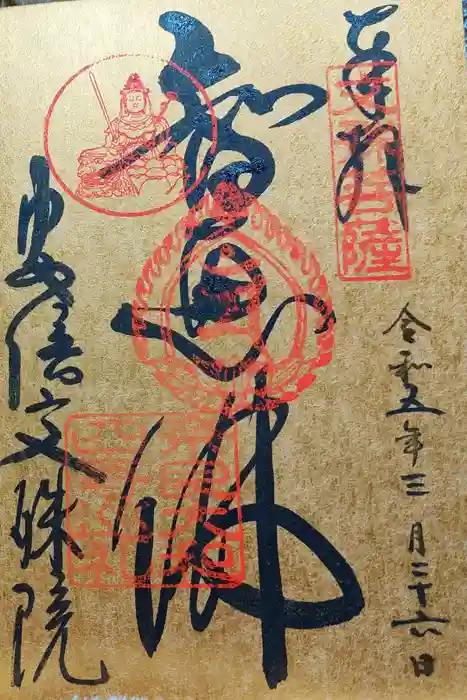 奉拝
令和五年三月二十六日
智恵佛
安倍文殊院